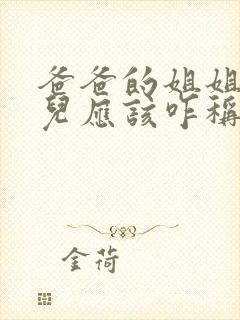 爸爸的姐姐
兒應該咋稱
金荷